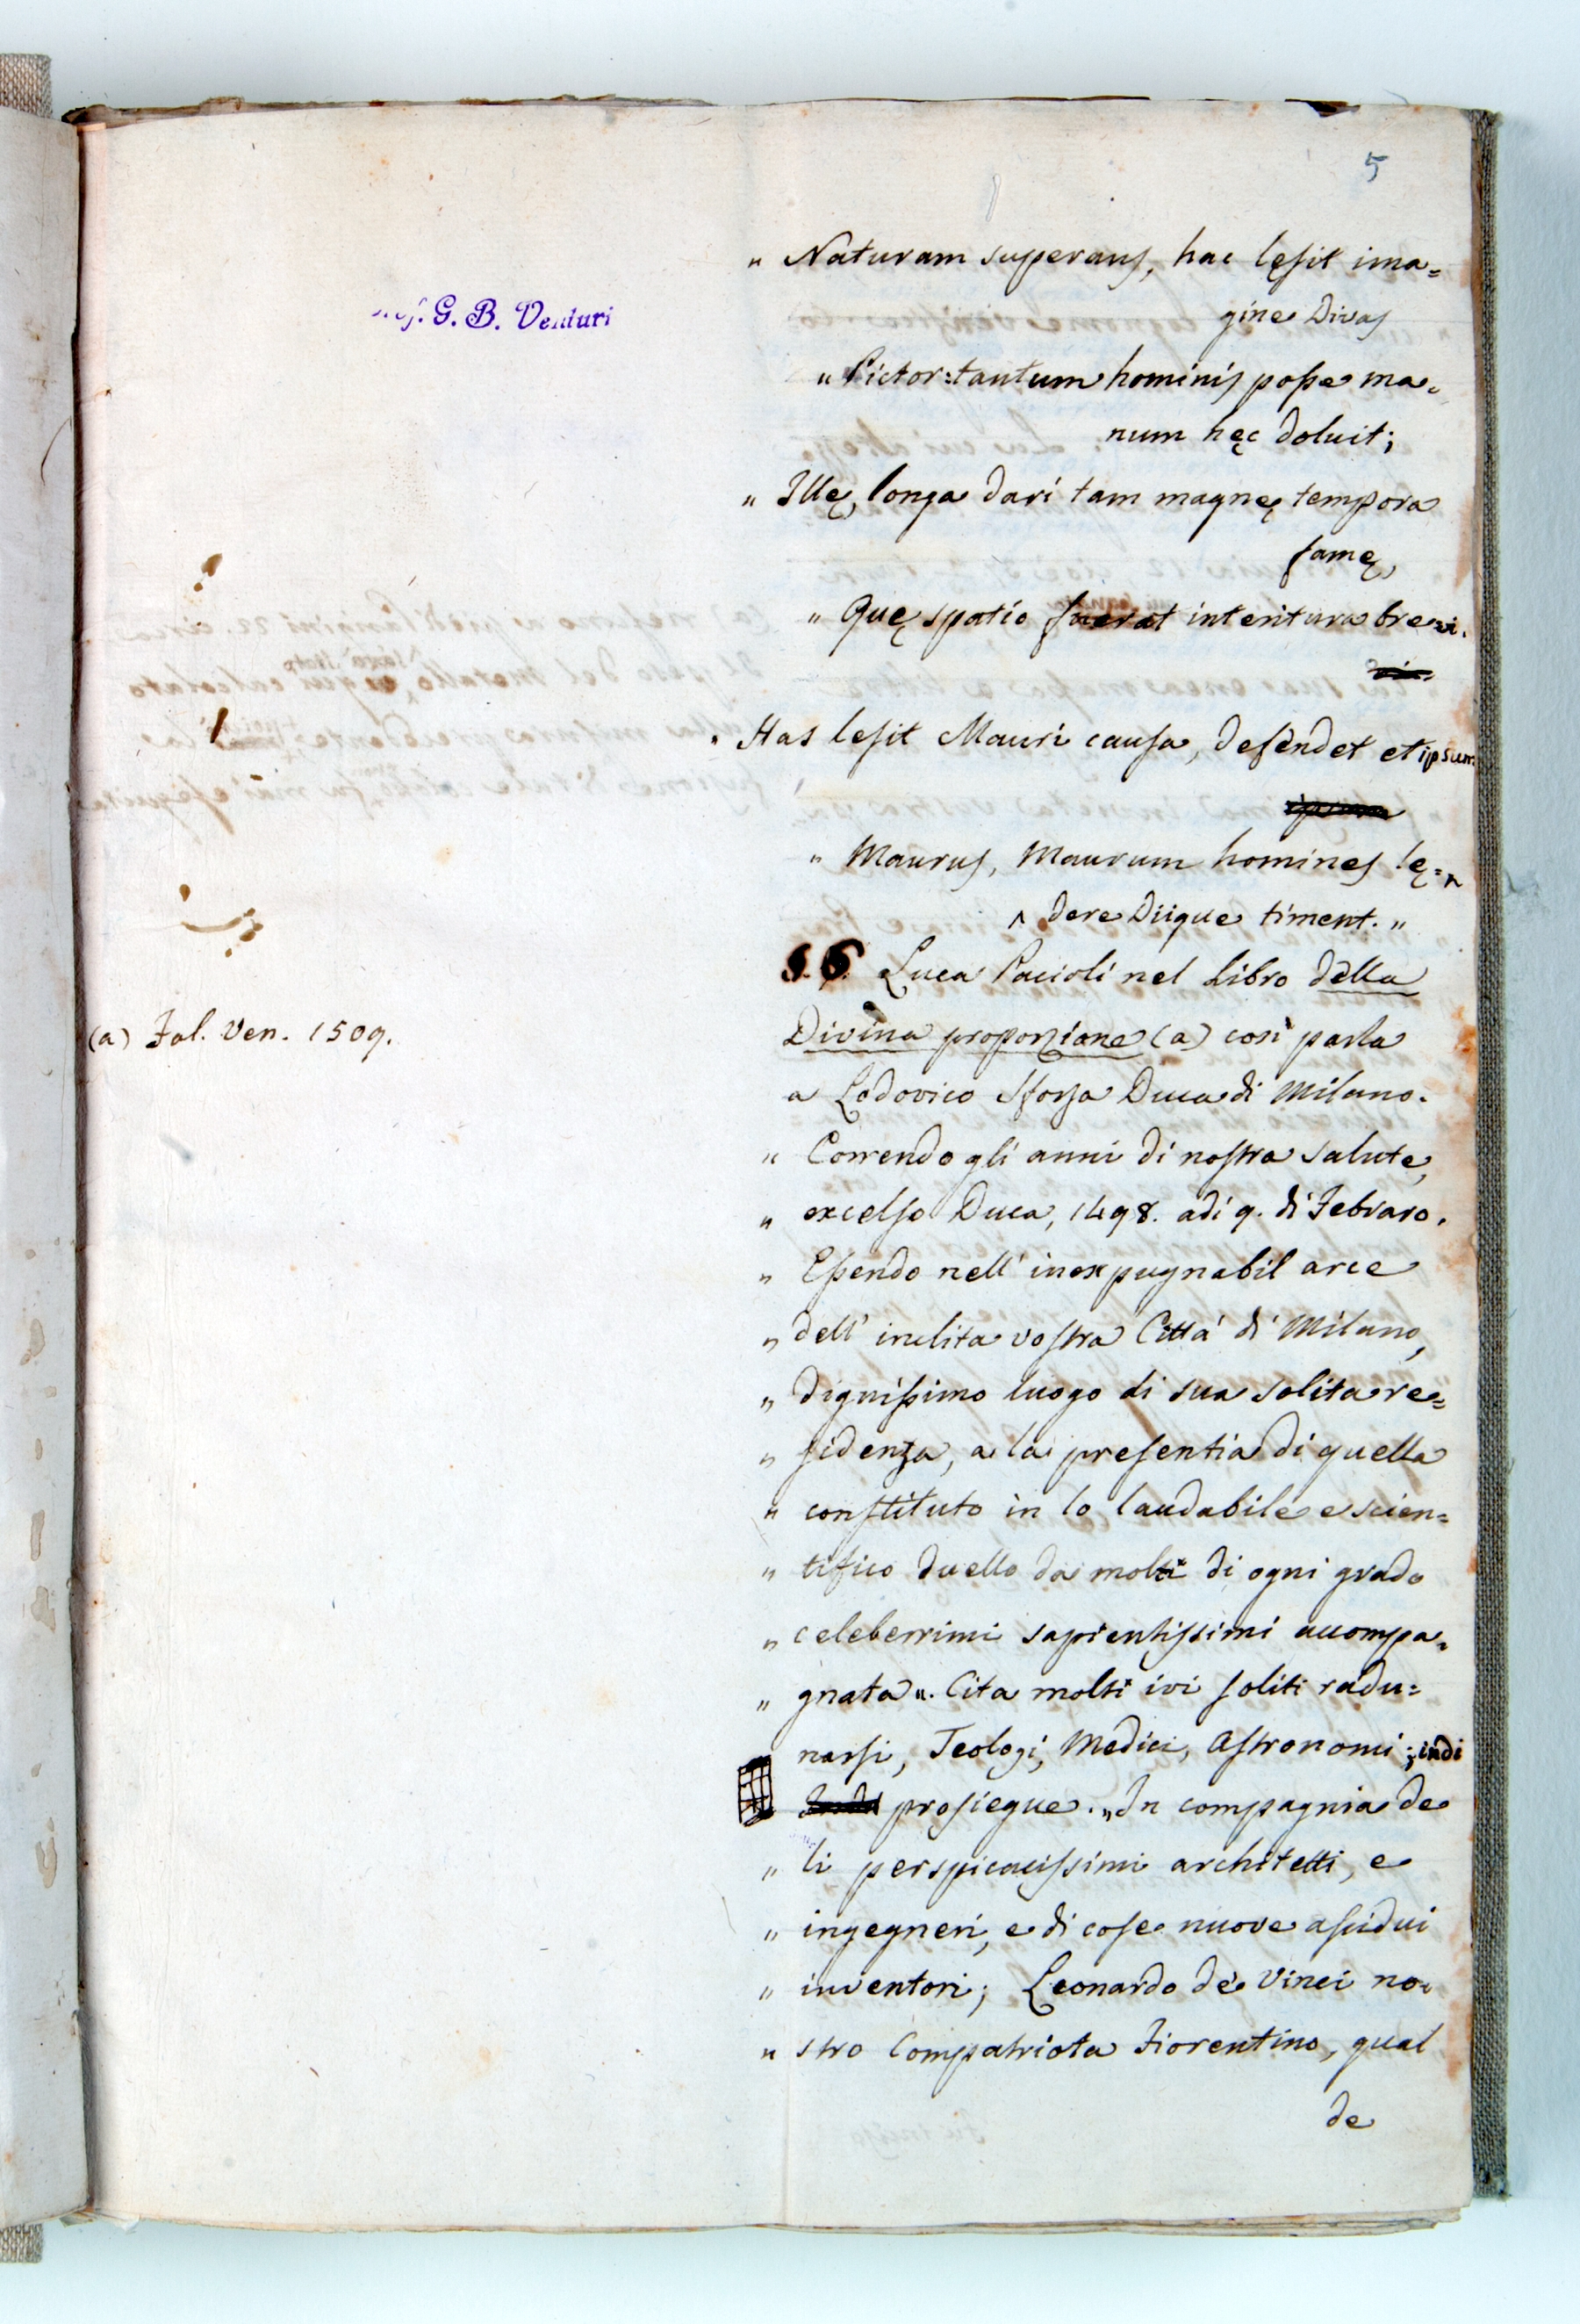 5
" Naturam superans, hac lęsit ima=
gine Divas
Prof. G. B. Venturi
" Pictor: tantum hominis posse ma=
num hęc doluit;
" Illę, longa dari tam magnę tempora
famę,
" Quę spatio fuerat interitura brevi.
Has lesit Mauri causa, defendet et ipsum
ipsum
" Maurus, Maurum homines lę=
dere Diique timent. "
§. 6. Luca Pacioli nel Libro della
Divina proporzione (a) così parla
(a) Fol. Ven. 1509.
a Lodovico Sforza Duca di Milano.
" Correndo gli anni di nostra salute,
" excelso Duca, 1498. adi 9. di Febraro.
" Essendo nell' inexpugnabil arce
" dell' inclita vostra Città di Milano,
" dignissimo luogo di sua solita re=
" sidenza, a la presentia di quella
" constituto in lo laudabile e scien=
" tifico duello da molti di ogni grado
" celeberrimi sapientissimi accompa=
" gnata". Cita molti ivi soliti radu=
narsi, Teologi, Medici, Astronomi; indi
prosiegue. "In compagnia de
" li perspicacissimi architetti, e
" ingegneri, e di cose nuove assidui
" inventori; Leonardo de Vinci no=
" stro Compatriota Fiorentino, qual
de